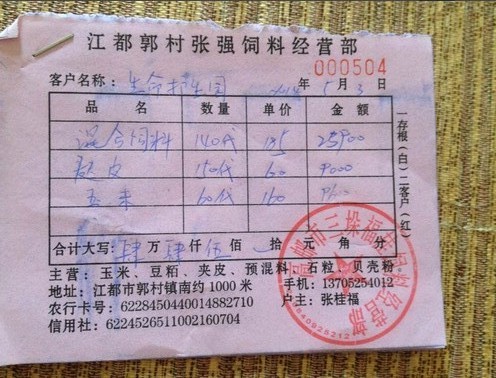 江都郭村张强饲料经营部
000504
客户名称: 生命 园 年 5 月 3 日
品 名 数量 单价 金额
混合饲料 140代 185 25900
麸皮 150代 60 9000
玉米 60代 160 9600
合计大写: 肆 万 肆 仟 伍 佰 拾 元 角 分
一存根(白)二客户(红)
主营: 玉米、豆粕、夹皮、预混料、石粒、贝壳粉
地址: 江都市郭村镇南约1000米 手机: 13705254012
农行卡号: 6228450440014882710 户主: 张桂福
信用社: 6224526511002160704